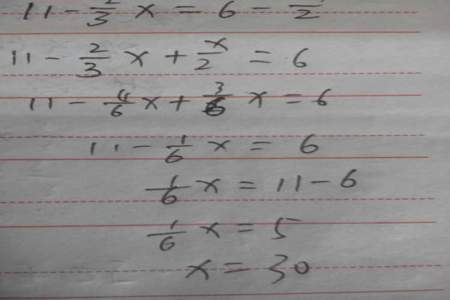 11 - 2/3 x = 6 - x/2
11 - 2/3 x + x/2 = 6
11 - 4/6 x + 3/6 x = 6
11 - 1/6 x = 6
1/6 x = 11 - 6
1/6 x = 5
x = 30